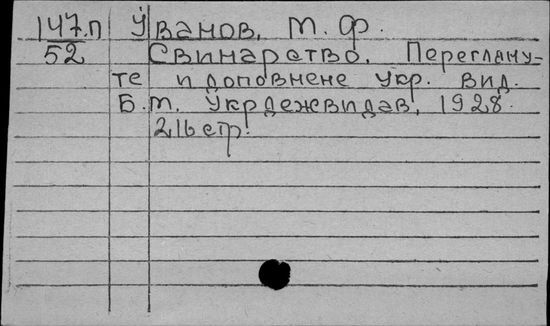 147.п Іванов, М. Ф.
52 Свинарство. Перегляну-
те и доповнене укр. вид.
Б.м. Укрдежвидав, 1928.
216стр.